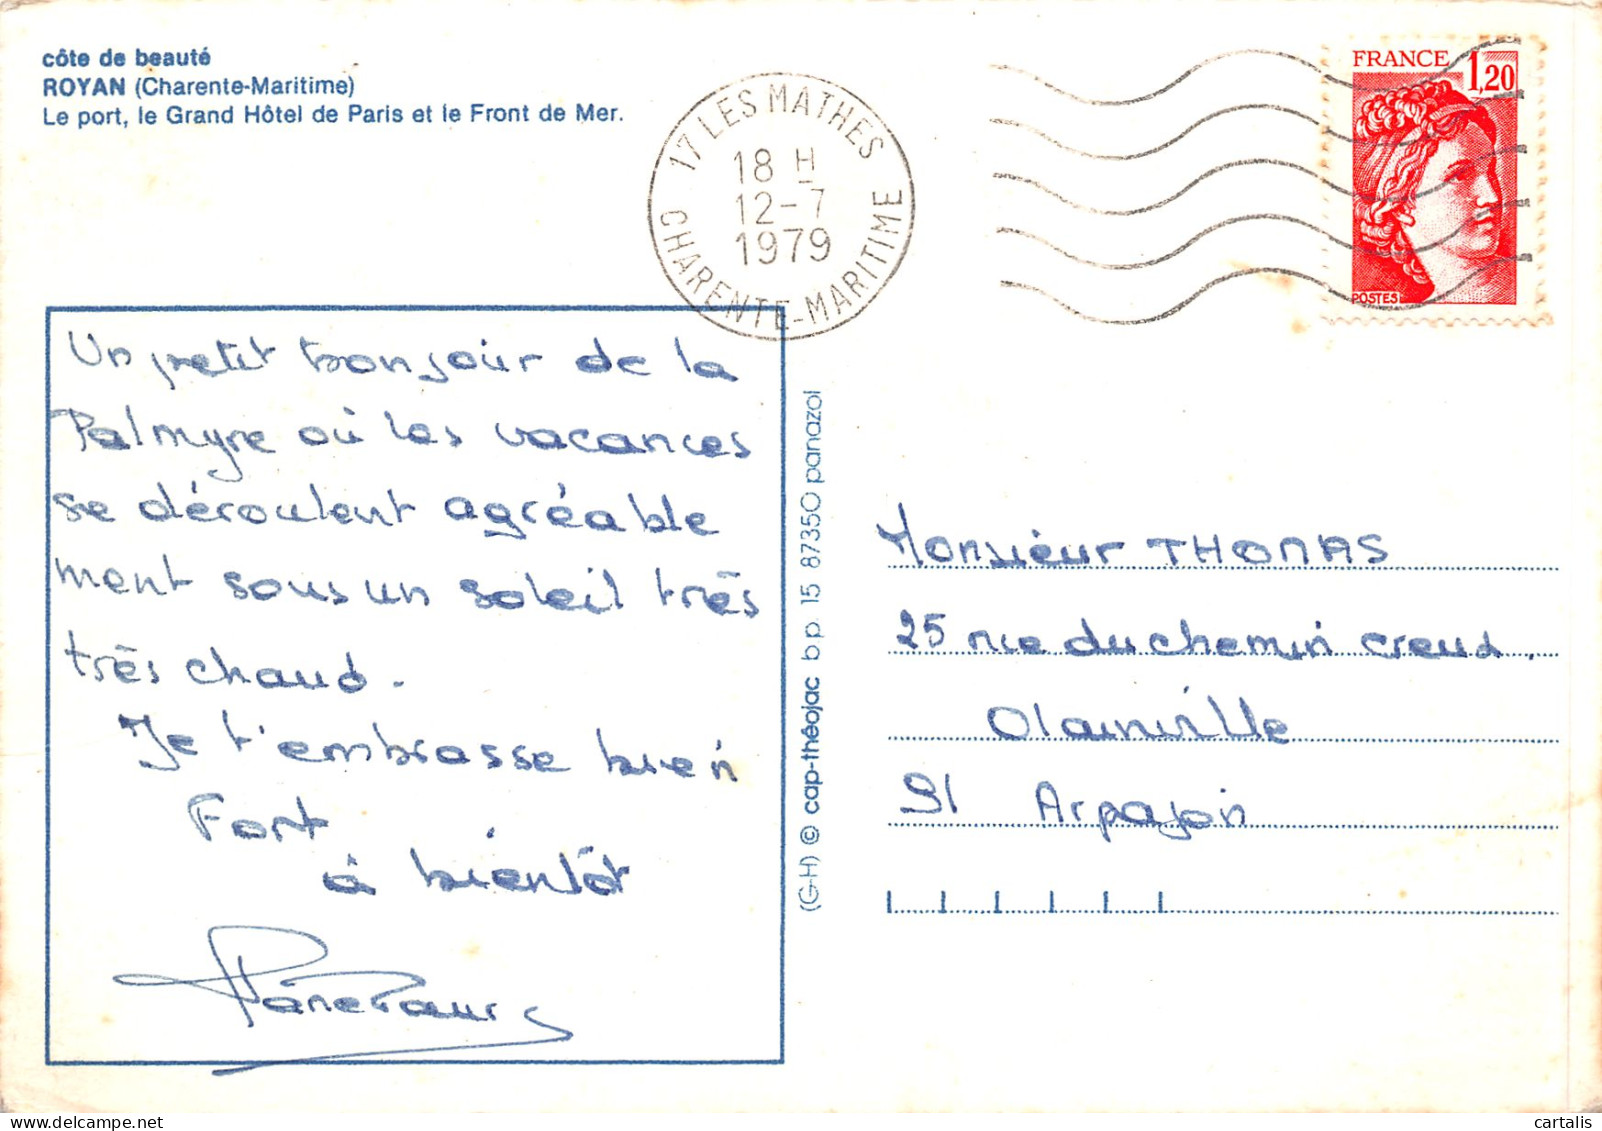 côte de beauté
ROYAN (Charente-Maritime)
Le port, le Grand Hôtel de Paris et le Front de Mer.
17 LES MATHES
18 H
12-7
1979
CHARENTE-MARITIME
FRANCE
1,20
POSTES
Un petit bonjour de la
Palmyre où les vacances
se déroulent agréable
ment sous un soleil très
très chaud.
Je t'embrasse bien
Fort
à bientôt
(G-H) © cap-théojac b.p. 15 87350 panazol
Monsieur THOMAS
25 rue du chemin creux.
Olainville
91 Arpajon
cartalis